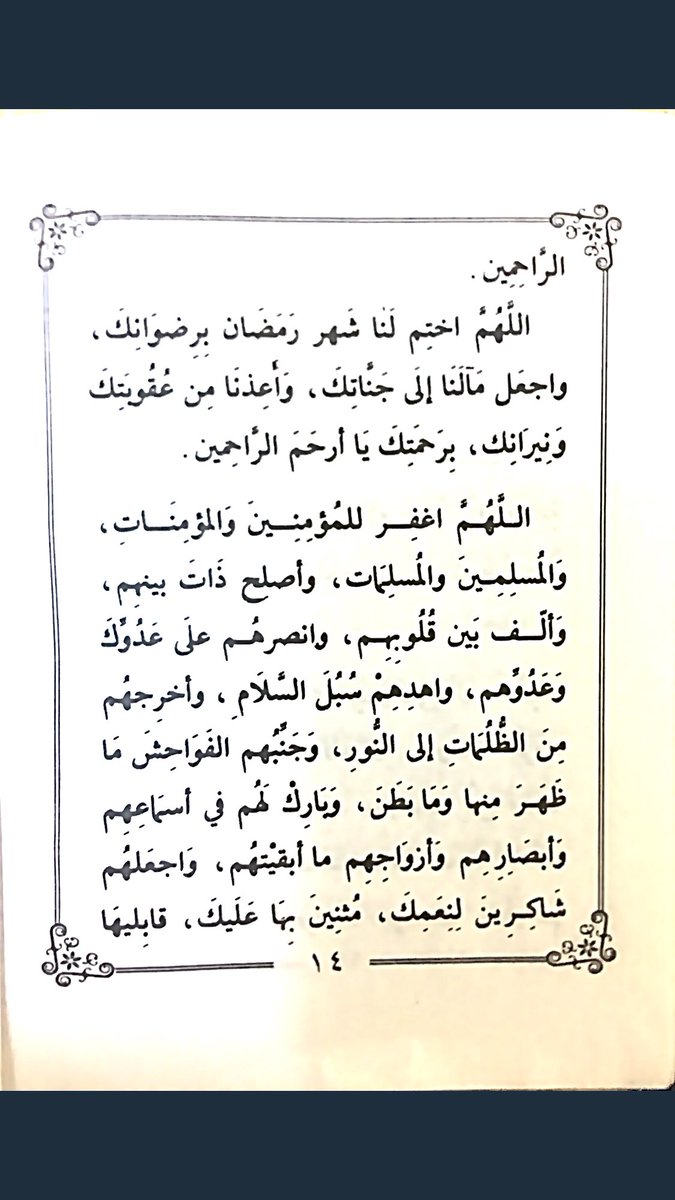 الرَّاحِمِين.
اللَّهُمَّ اختِم لَنا شَهر رَمَضَان بِرِضوَانِكَ،
واجعَل مَآلَنَا إلَى جَنَّاتِكَ، وَأَعِذنَا مِن عُقُوبَتِكَ
وَنِيرَانِك، بِرَحمَتِكَ يَا أرحَمَ الرَّاحِمِين.
اللَّهُمَّ اغفِر للمُؤمِنِينَ وَالمؤمِنَاتِ،
وَالمُسلِمِينَ والمُسلِمَات، وأصلِح ذَاتَ بينهِم،
وَألّف بَين قُلُوبِهِم، وانصرهُم علَى عَدُوِّكَ
وَعَدُوِّهم، واهدِهِمْ سُبُلَ السَّلَامِ، وأخرِجهُم
مِنَ الظُّلُمَاتِ إلى النُّورِ، وَجَنِّبُهم الفَوَاحِشَ مَا
ظَهَرَ مِنها وَمَا بَطَنَ، وَبَارِكْ لَهُم في أسمَاعِهِم
وَأبصَارِهِم وَأزوَاجِهِم ما أبقيْتهُم، وَاجعَلهُم
شَاكِرِينَ لِنِعَمِكَ، مُثنِينَ بِهَا عَلَيكَ، قابِليهَا
١٤